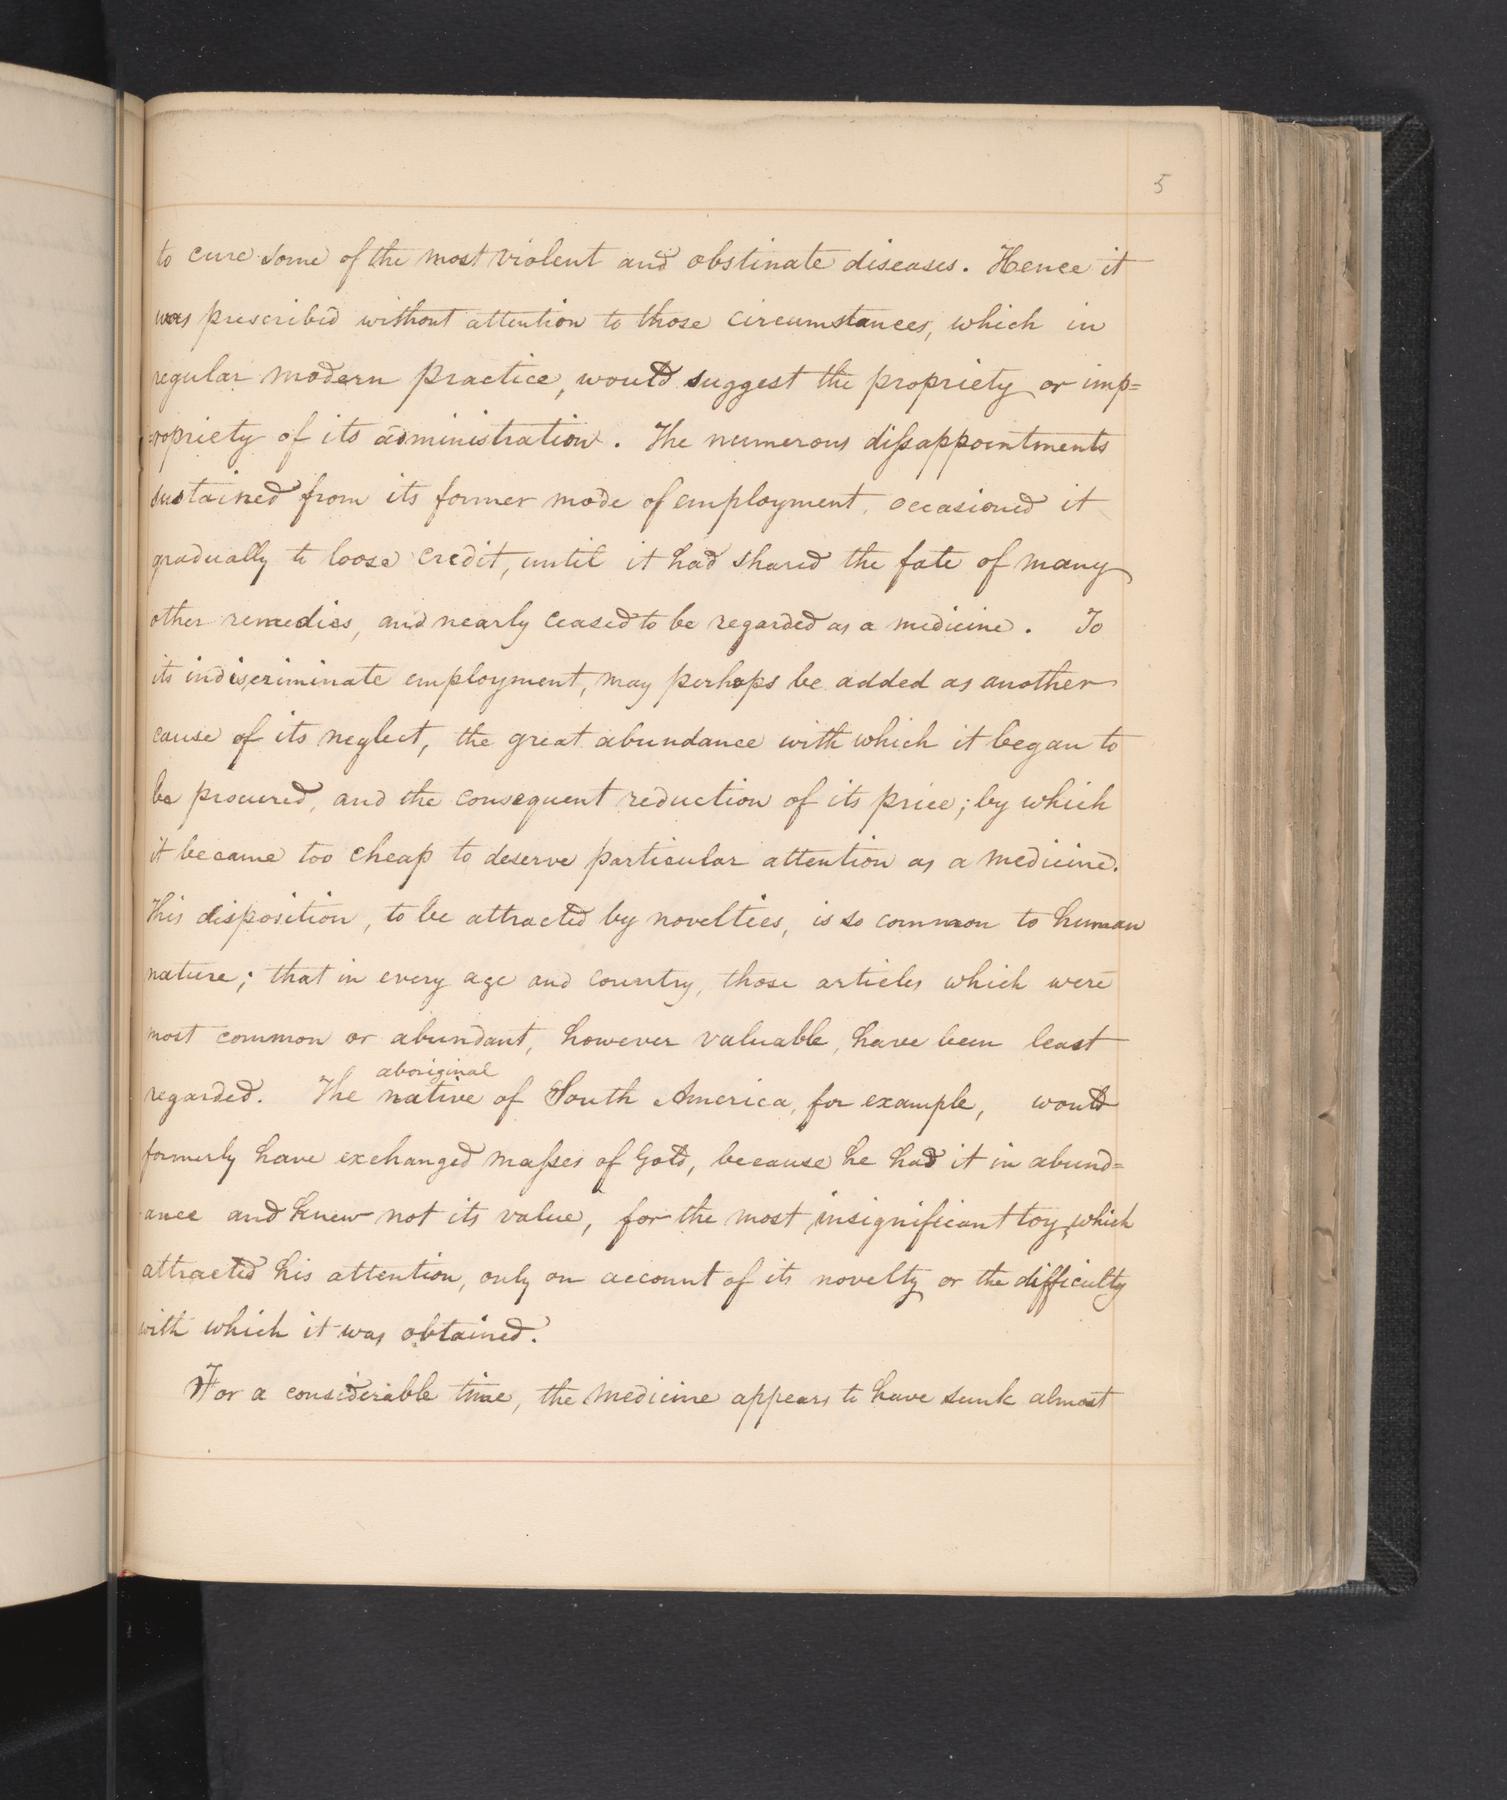 5
to cure some of the most violent and obstinate diseases. Hence it
was prescribed without attention to those circumstances, which in
regular modern practice, would suggest the propriety or imp=
=ropriety of its administration. The numerous dissappointments
sustained from its former mode of employment, occasioned it
gradually to loose credit, until it had shared the fate of many
other remedies, and nearly ceased to be regarded as a medicine. To
its indiscriminate employment, may perhaps be added as another
cause of its neglect, the great abundance with which it began to
be procured, and the consequent reduction of its price; by which
it became too cheap to deserve particular attention as a medicine.
This disposition, to be attracted by novelties, is so common to human
nature; that in every age and country, those articles which were
most common or abundant, however valuable, have been least
aboriginal
regarded. The native of South America, for example, would
formerly have exchanged masses of Gold, because he had it in abund=
ance and knew not its value, for the most insignificant toy, which
attracted his attention, only on account of its novelty or the difficulty
with which it was obtained.
For a considerable time, the medicine appears to have sunk almost